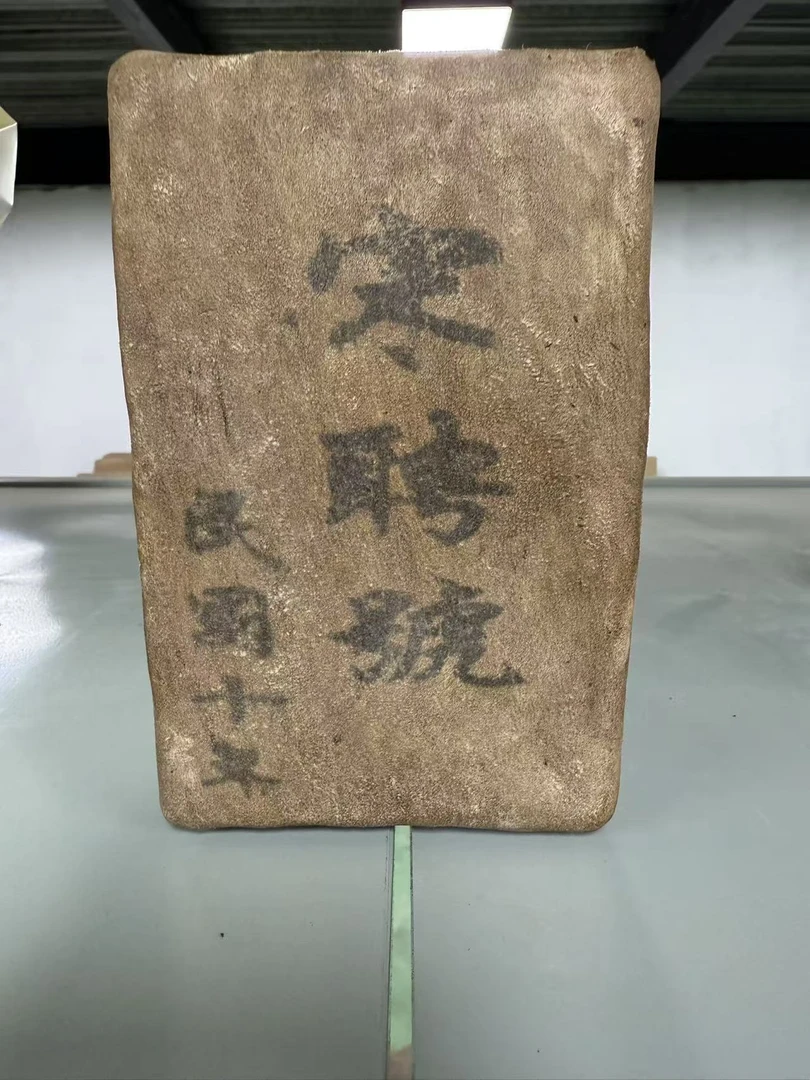 寒聘號
民國十年